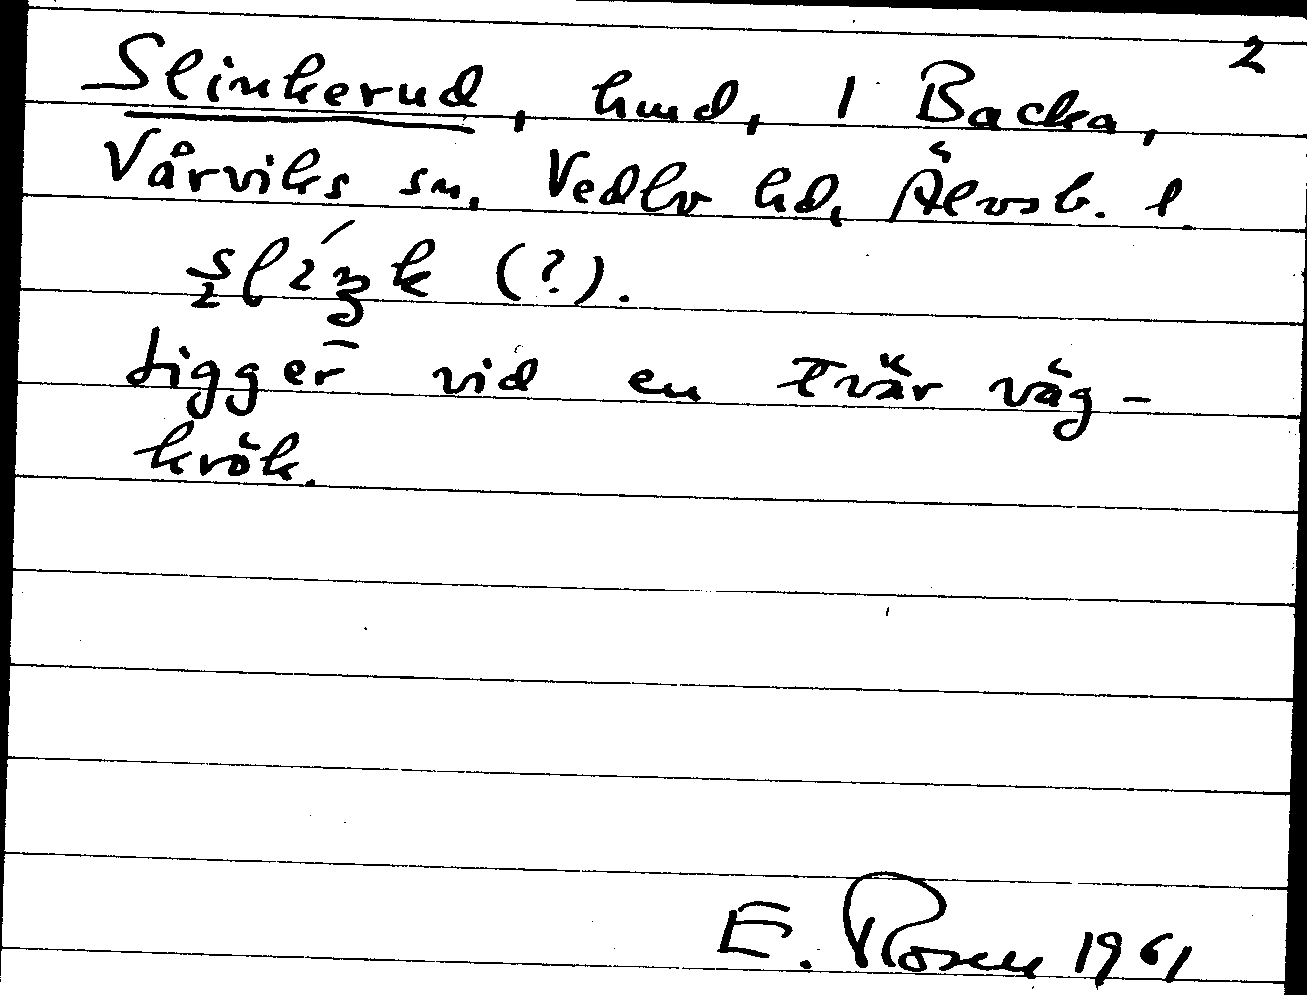 2
Slinkerud, hmd, 1 Backa,
Vårviks sn, Vedbo hd, Älvsb. l
Ligger vid en tvär väg-
krök.
E. Rosen 1961